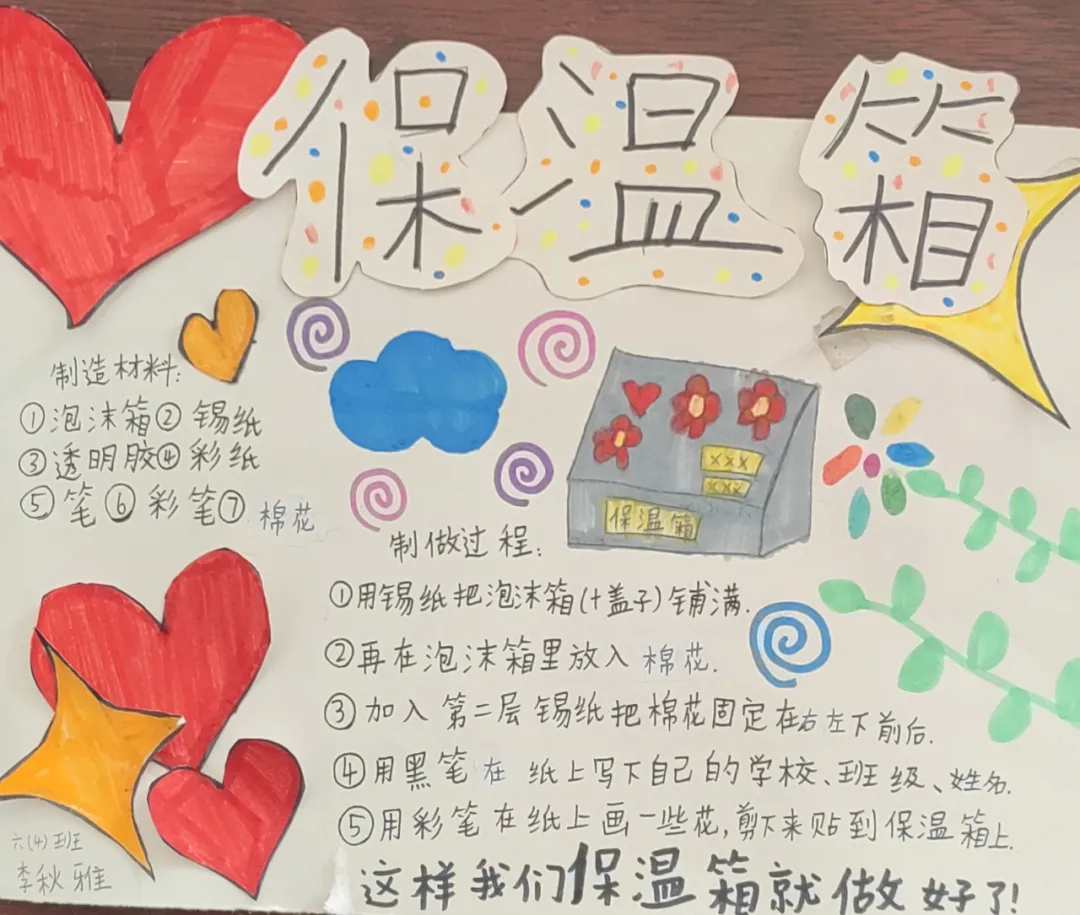 保温箱
制造材料:
①泡沫箱②锡纸
③透明胶④彩纸
⑤笔⑥彩笔⑦棉花
×××
×××
保温箱
制做过程:
①用锡纸把泡沫箱(+盖子)铺满.
②再在泡沫箱里放入棉花.
③加入第二层锡纸把棉花固定在右左下前后.
④用黑笔在纸上写下自己的学校、班级、姓名.
⑤用彩笔在纸上画一些花,剪下来贴到保温箱上.
这样我们保温箱就做好了!
六(4)班
李秋雅